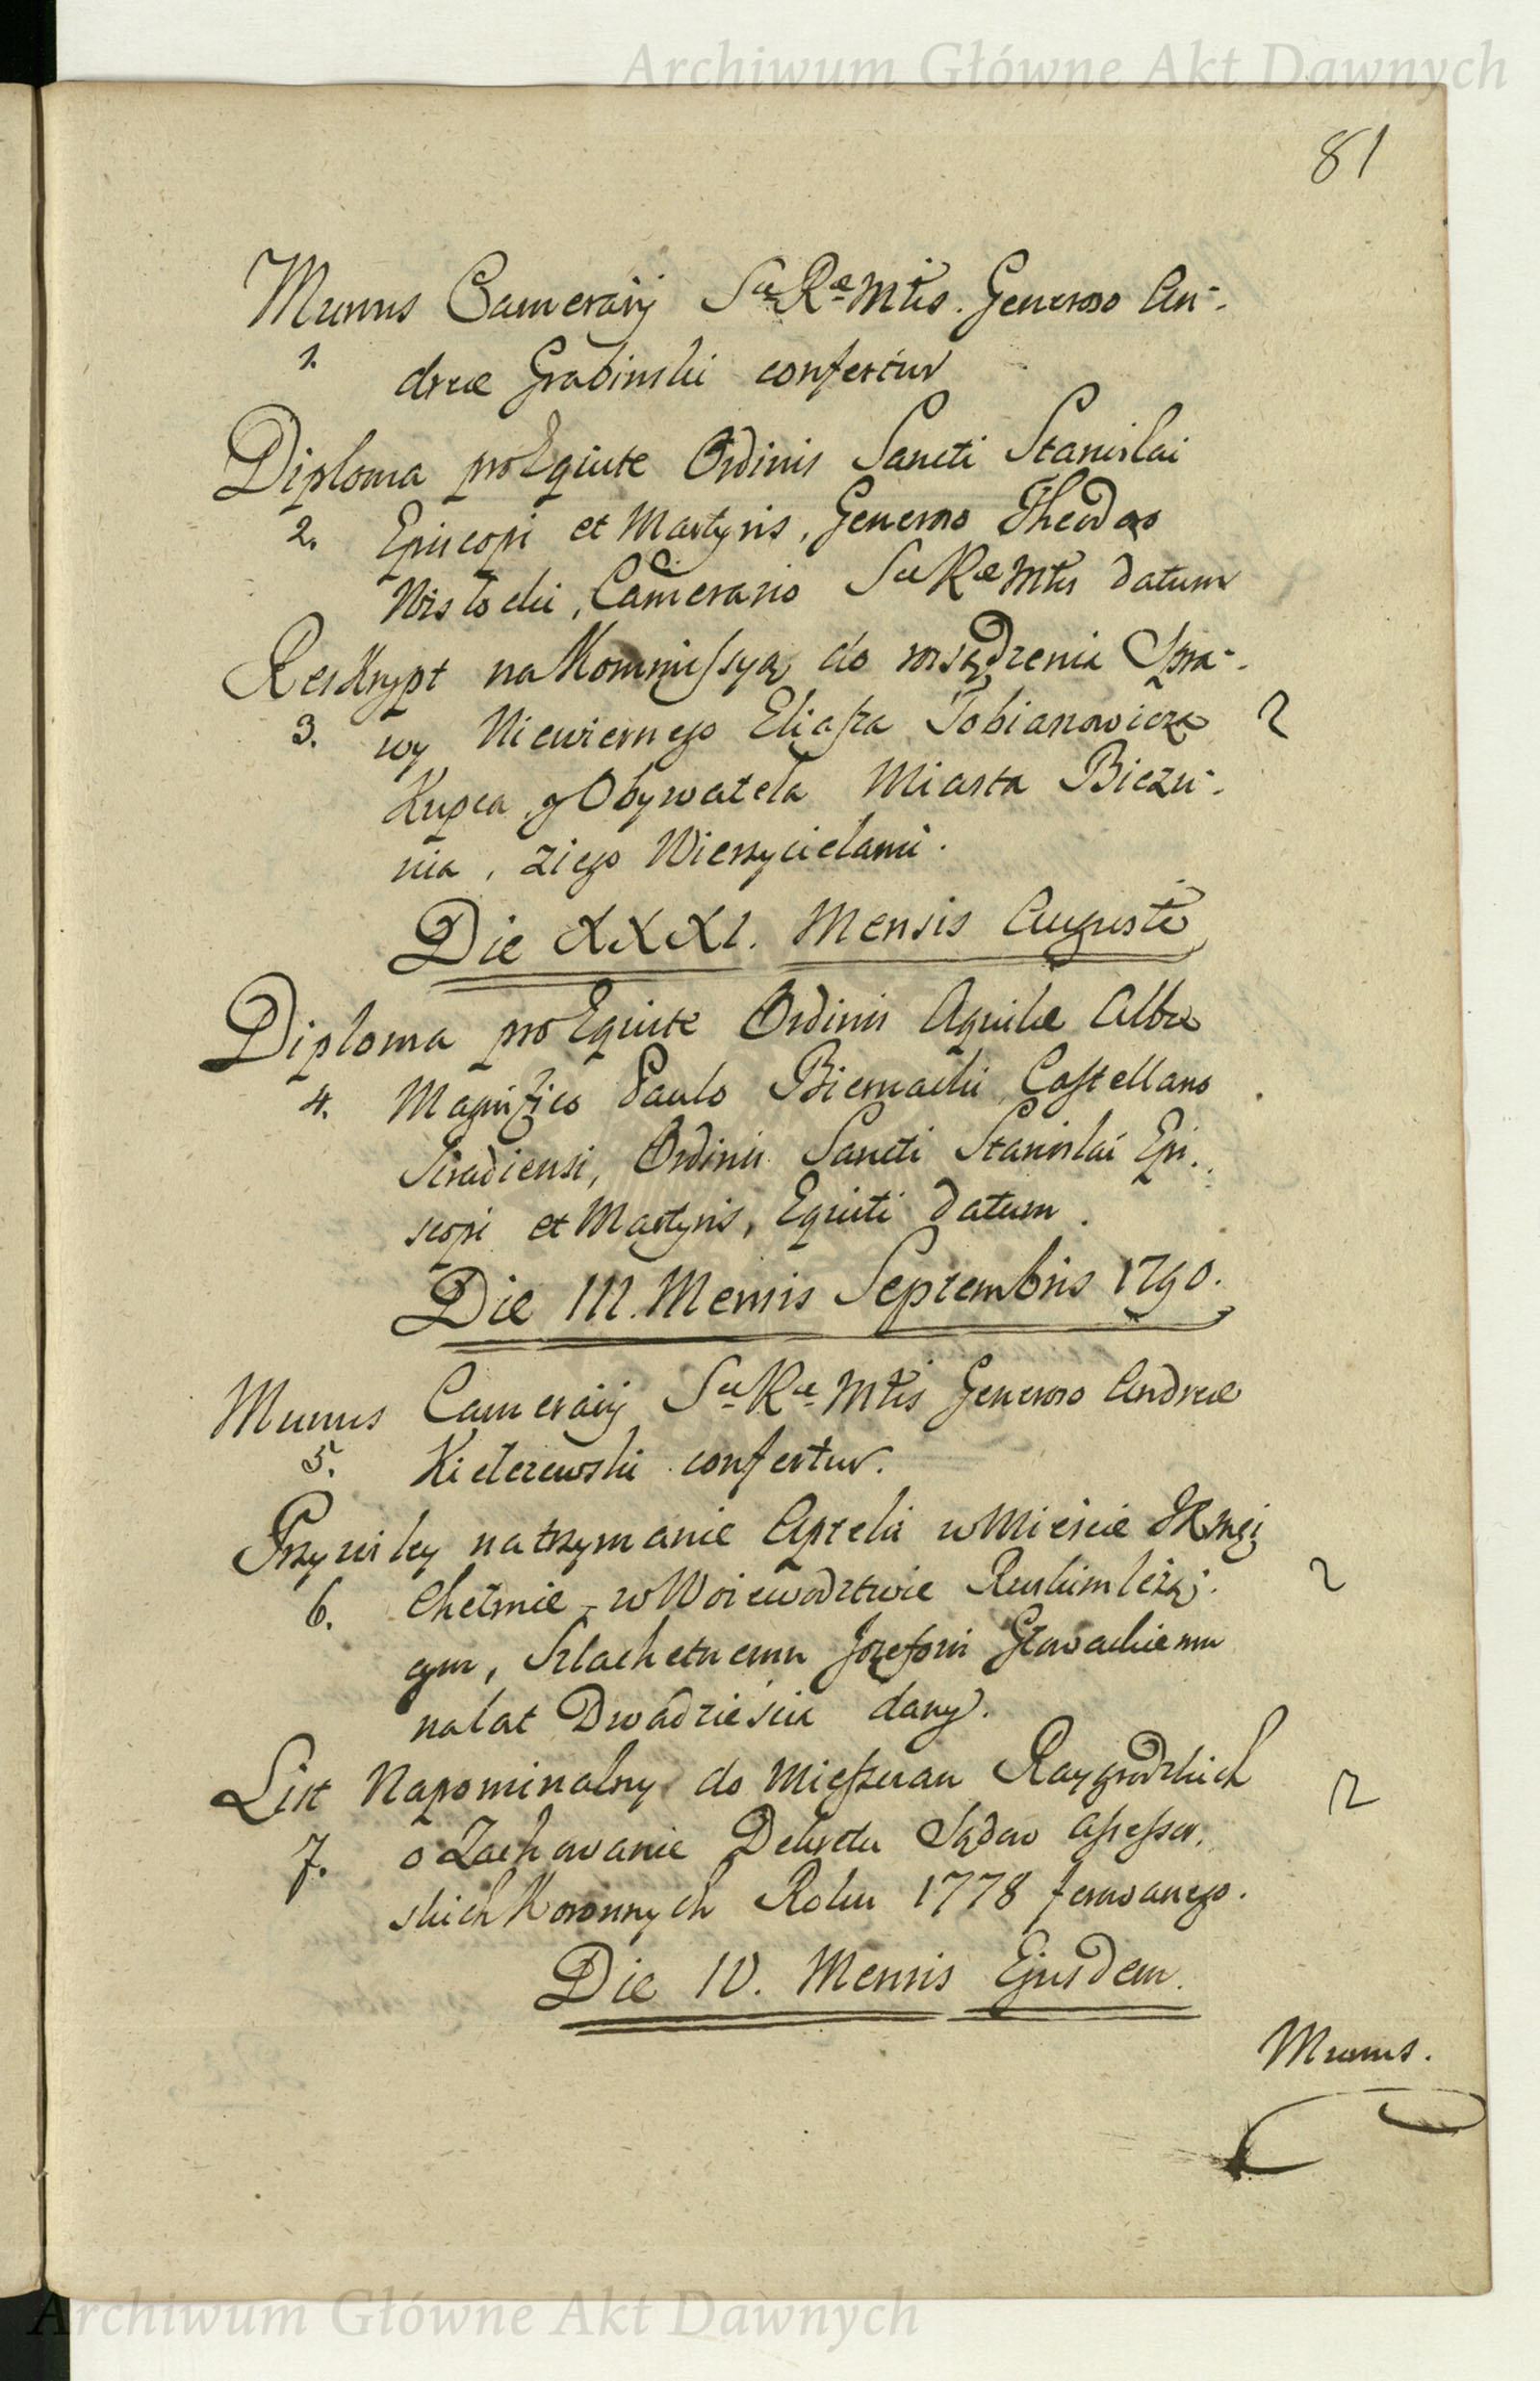 Archiwum Główne Akt Dawnych
81
Munus Camerarij Sæ Ræ Mtis. Generoso An-
1. dreæ Grabinski confertur
Diploma pro Equite Ordinis Sancti Stanislai
2. Episcopi et Martyris, Generoso Theodoro
Wisłocki, Camerario Sæ Ræ Mtis datum
Reskrypt na Kommissyą do rosądzenia Spra-
3. wy Niewiernego Eliasza Tobianowicza
Kupca y Obywatela Miasta Biezu-
nia, z iego Wierzycielami.
Die XXXI. Mensis Augusti
Diploma pro Equite Ordinis Aquilæ Albæ
4. Magnifico Paulo Biernacki Castellano
Siradiensi, Ordinis Sancti Stanislai Epi-
scopi et Martyris, Equiti datum.
Die III. Mensis Septembris 1790.
Munus Camerarij Sæ Ræ Mtis Generoso Andreæ
5. Kiełczewski confertur.
Przywiley na trzymanie Apteki w Mieście
6. Chełmie w Woiewodztwie Ruskim leżą-
cym, Szlachetnemu Jozefowi Głowackiemu
na lat Dwadzieścia dany.
List Napominalny do Mieszczan Raygrodzkich
7. o Zachowanie Dekretu Sądow Assessor-
skich Koronnych Roku 1778 ferowanego.
Die IV. Mensis Ejusdem.
Munus.
Archiwum Główne Akt Dawnych